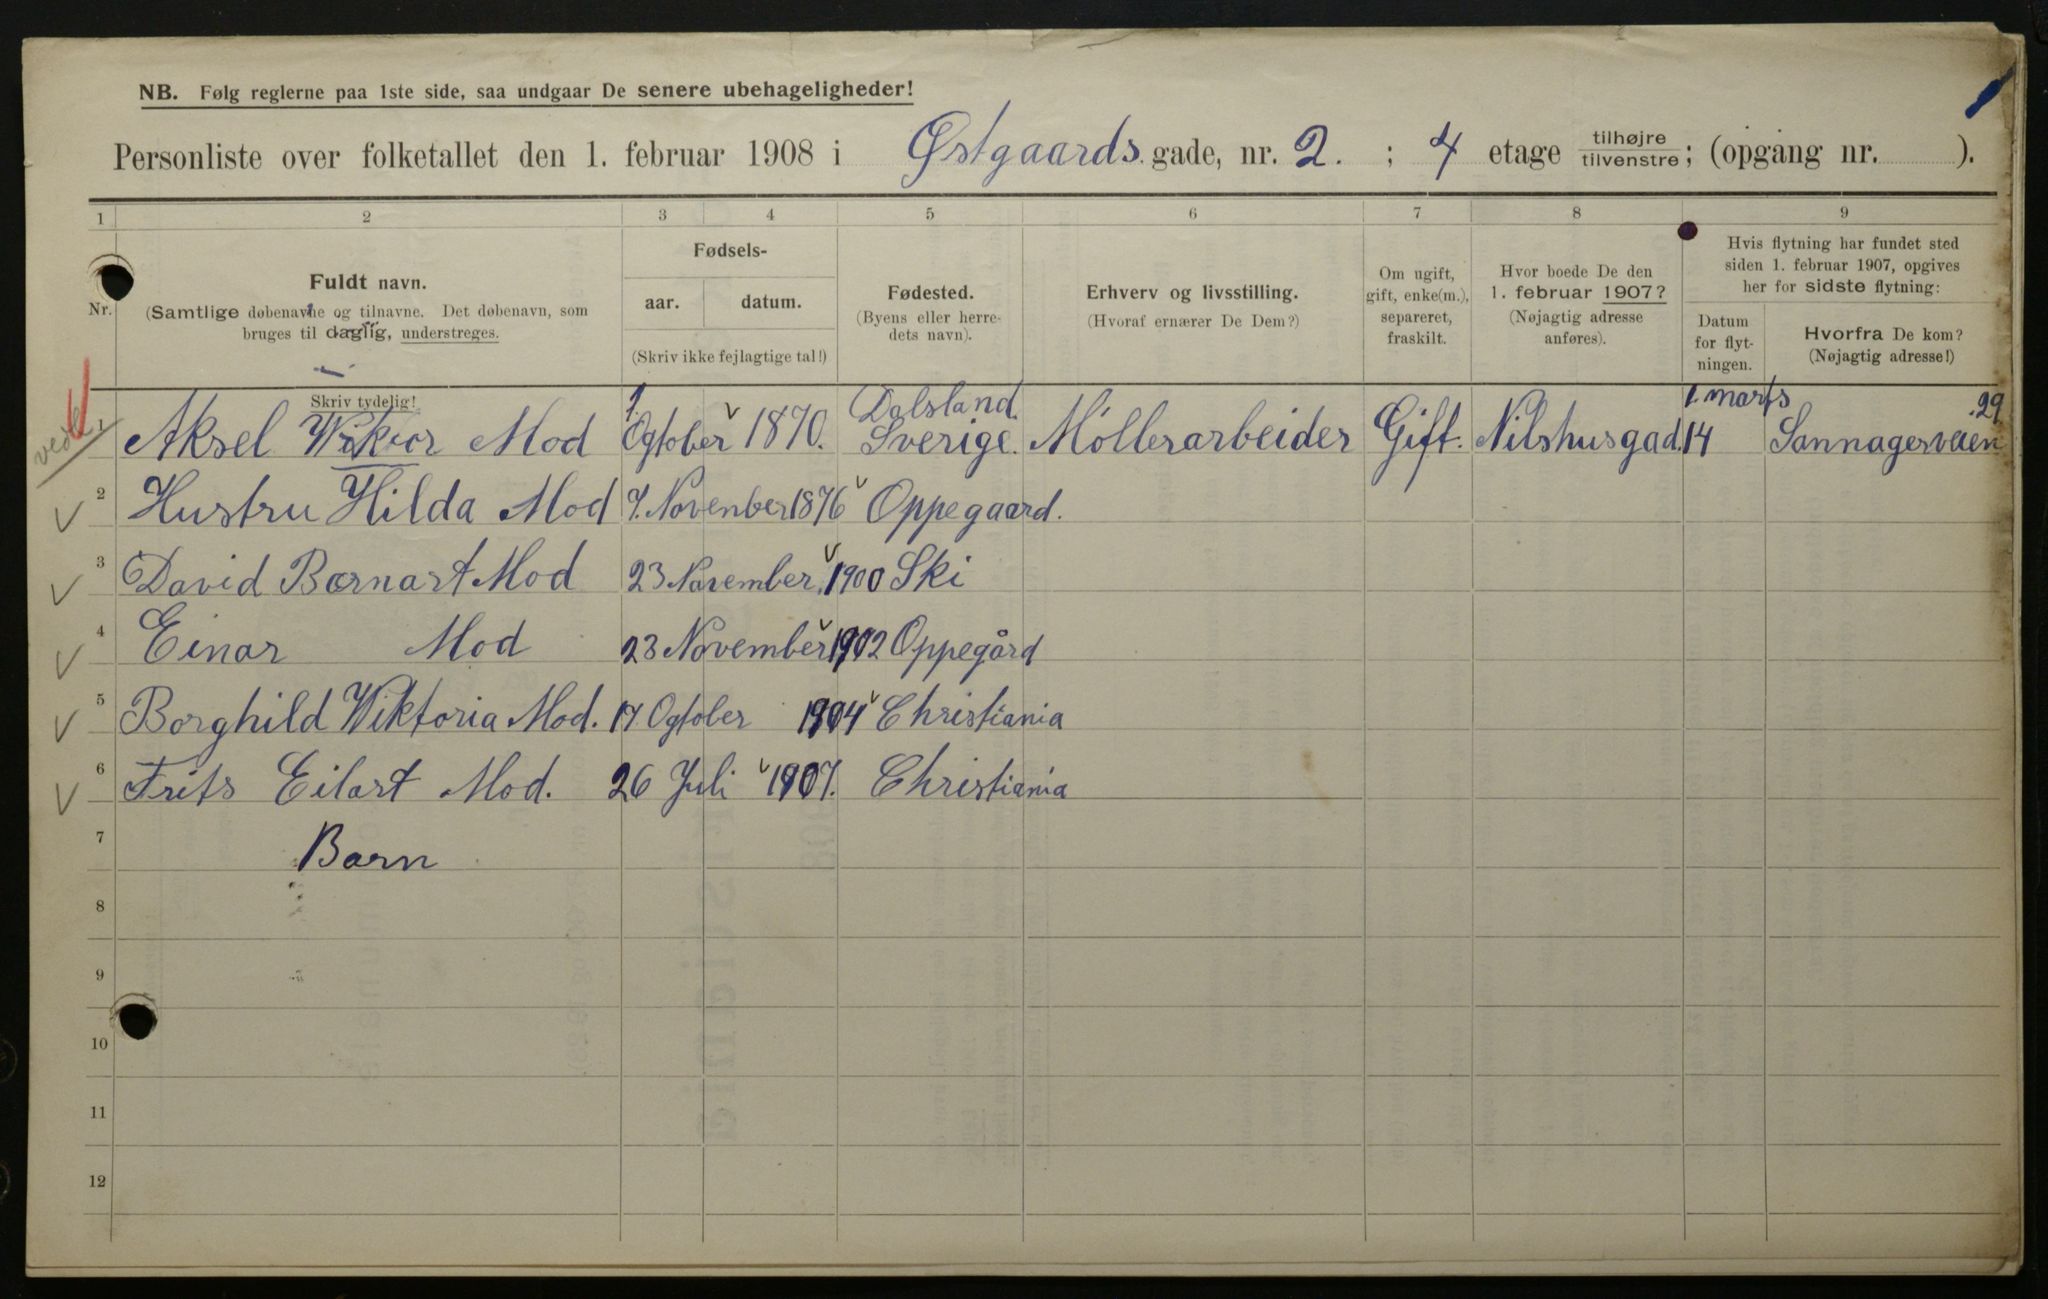 NB. Følg reglerne paa 1ste side, saa undgaar De senere ubehageligheder!
Personliste over folketallet den 1. februar 1908 i Østgaards gade, nr. 2. ; 4 etage tilhøjre / tilvenstre ; (opgang nr. ).
1 2 3 4 5 6 7 8 9
Nr.
Fuldt navn.
(Samtlige døbenavne og tilnavne. Det døbenavn, som
bruges til daglig, understreges.
Skriv tydelig!
Fødsels-
aar. datum.
(Skriv ikke fejlagtige tal!)
Fødested.
(Byens eller herre-
dets navn).
Erhverv og livsstilling.
(Hvoraf ernærer De Dem?)
Om ugift,
gift, enke(m.),
separeret,
fraskilt.
Hvor boede De den
1. februar 1907?
(Nøjagtig adresse
anføres).
Hvis flytning har fundet sted
siden 1. februar 1907, opgives
her for sidste flytning:
Datum
for flyt-
ningen.
Hvorfra De kom?
(Nøjagtig adresse!)
1 Aksel Wiktor Mod 1. Ogtober 1870. Dalsland. Sverige. Møllerarbeider Gift. Nilshusgad. 14 1. marts Sannagerveien 29
2 Hustru Hilda Mod 7. November 1876 Oppegaard.
3 David Bærnart Mod 23 November 1900 Ski
4 Einar Mod 23 November 1902 Oppegård
5 Borghild Wiktoria Mod. 17. Ogtober 1904 Christiania
6 Frits Eilart Mod. 26 Juli 1907. Christiania
7 Barn
8
9
10
11
12